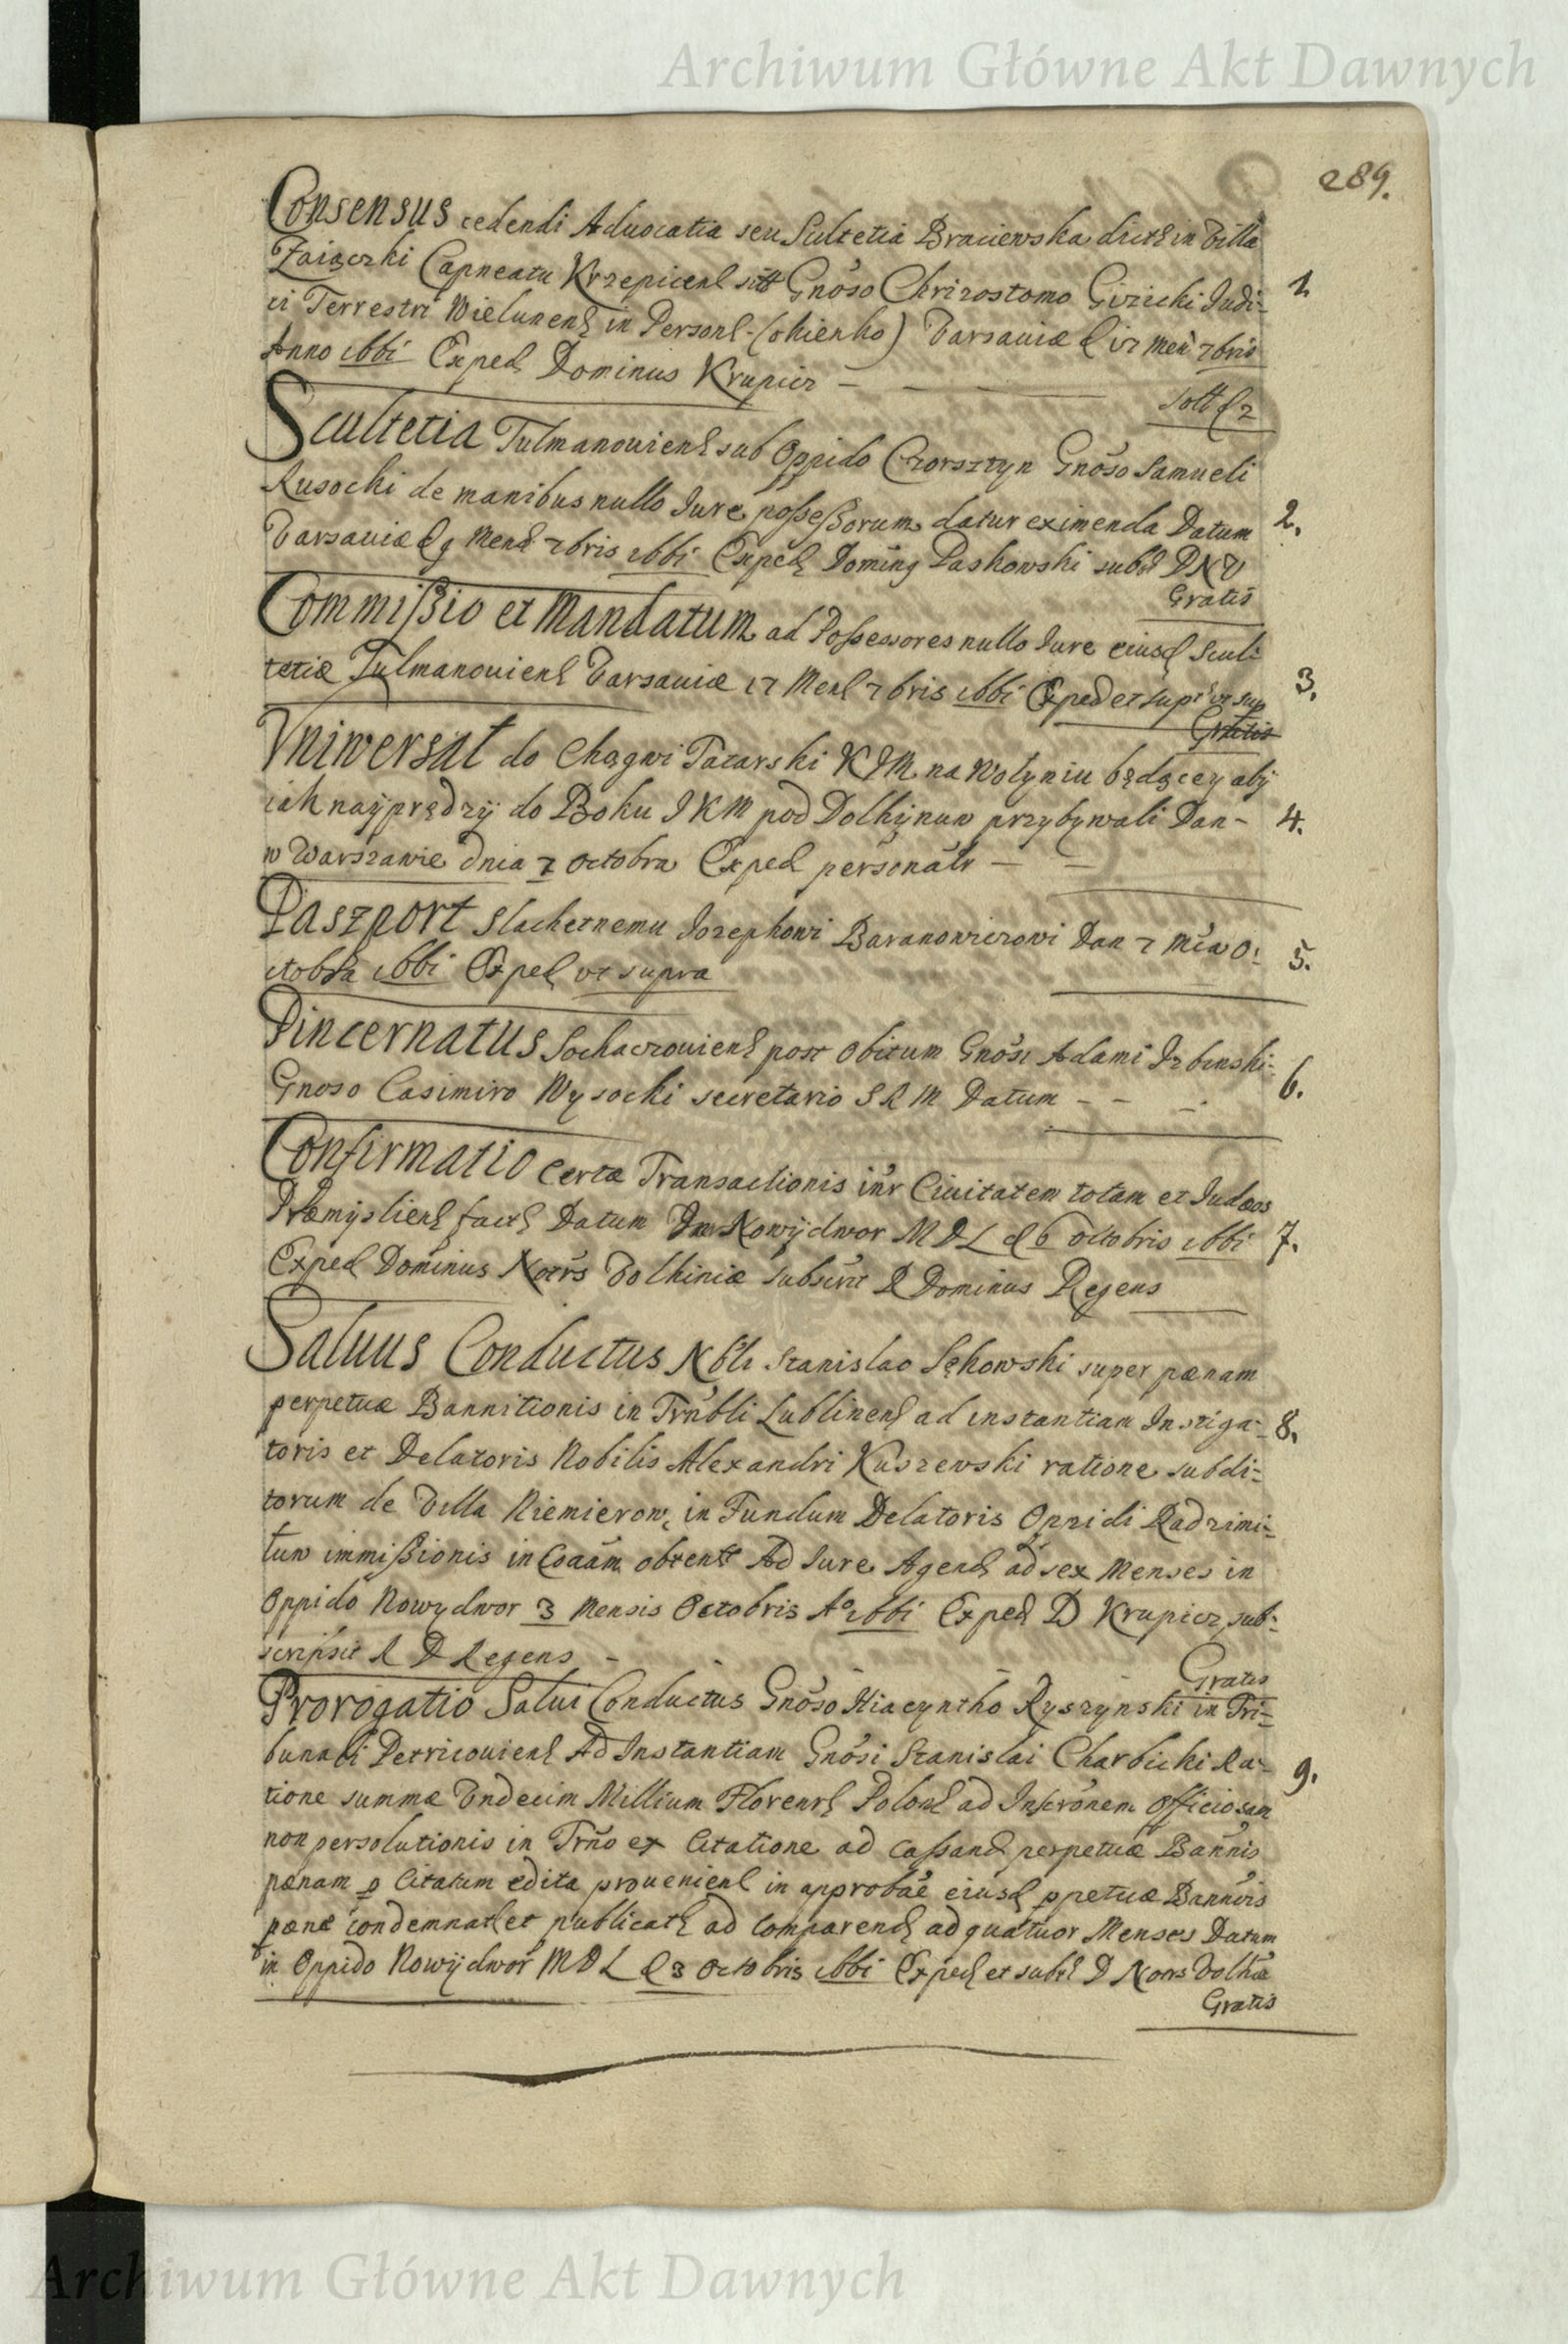 Archiwum Główne Akt Dawnych
289.
Consensus cedendi Aduocatia seu Sultetia Braciewska dict in Villa
Zaiączki Capneatu Krzepicen sitt Gnoso Chrizostomo Gizicki Judi-
ci Terrestri Wielunen in Person Varsauiæ Men 7bris
Anno 1661 Exped Dominus Krupicz
1
Scultetia Tulmanouien sub Oppido Czorsztyn Gnoso Samueli
Rusocki de manibus nullo Jure possessorum datur eximenda Datum
Varsauiæ 9 Mens 7bris 1661 Exped Domins Paskowski subs D N V
2.
Gratis
Commissio et Mandatum ad Possessores nullo Jure eiusd Scul
tetiæ Tulmanouien Varsauiæ 17 Mens 7bris 1661 Exped et supr ut sup
3.
Gratis
Vniwersał do Chągwi Tatarski K J M na Wołyniu będącey aby
iak nayprędzy do Boku J K M pod Dolhynuw przybywali Dan-
4.
w Warszawie dnia 7 Octobra Exped personalr
Paszport Slachetnemu Jozephowi Baranowiczowi Dan 7 Mca O:
ctobra 1661 Exped vt supra
5.
Pincernatus Sochaczouien post obitum Gnosi Adami Izbinski
Gnoso Casimiro Wysocki secretario S R M Datum
6.
Confirmatio Certæ Transactionis intr Ciuitatem totam et Judæos
Præmyslien fact Datum Nowydwor M D L d 6 Octobris 1661
7.
Exped Dominus Notrs Volhiniæ subscrit R Dominus Regens
Saluus Conductus Nbli Stanislao Sękowski super pænam
perpetuæ Bannitionis in Trnbli Lublinen ad instantiam Instiga-
8.
toris et Delatoris Nobilis Alexandri Kuszewski ratione subdi=
torum de Villa Niemierow, in Fundum Delatoris Oppidi Radzimi=
tuw immissionis in Coaām obtent Ad Jure Agend ad sex Menses in
Oppido Nowydwor 3 Mensis Octobris Ao 1661 Exped D Krupicz sub=
scripsit R D Regens
Gratis
Prorogatio Salui Conductus Gnoso Hiacyntho Ryszynski in Tri=
bunali Petricouien Ad Instantiam Gnosi Stanislai Charbicki Ra=
9.
tione summæ Vndecim Millium Floren Polon ad Inscronem Officiosam
non persolutionis in Trno ex Citatione ad cassand perpetuæ Bannis
pænam p Citatum edita prouenien in approbae eiusd ppetuæ Bannis
pænæ condemnat et publicat ad Comparend ad quatuor Menses Datum
in Oppido Nowydwor M D L d 3 Octobris 1661 Exped et subs D Nors Volhæ
Gratis
Archiwum Główne Akt Dawnych